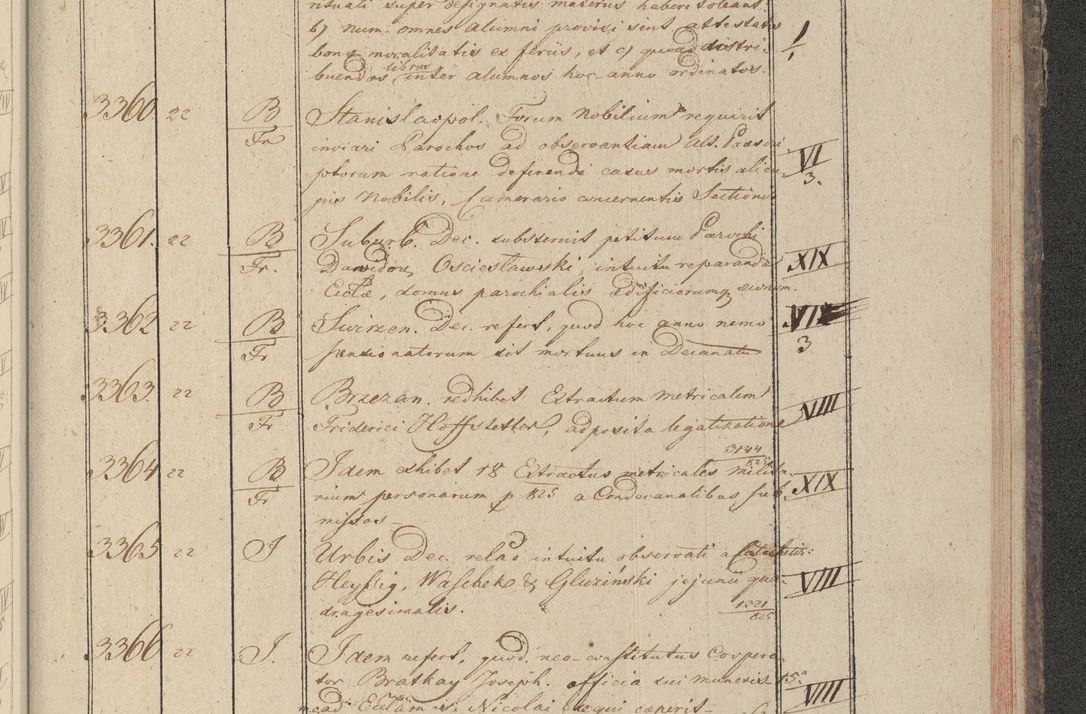 rituali super designatis materiis habere soleant
b) num omnes alumni provisi sint attestatis
bonæ moralitatis ex feriis, et c) quoad distri- 1/1
libros
buendos inter alumnos hoc anno ordinatos.
3360. 22 B/Fr Stanislaopol. Forum Nobilium requirit
inviari Parochos ad observantiam Alt. Præscri VI
ptorum ratione deferendi casus mortis alicu 3.
jus Nobilis, Camerario concernentis Sectionis
3361. 22 B/Fr. Suburb. Dec. substernit petitum Parochi
Dawidow, Oscieslawski, intuitu reparandæ XIX
Eccłæ, domus parochialis ædificiorumq eorum.
3362 22 B/Fr Swirzen. Dec. refert, quod hoc anno nemo VII
pensionatorum sit mortuus in Decanatu 3
3363. 22 B/Fr Brzezan. redhibet Extractum metricalem
Friderici Hoffstetter, adposita legalizatione VIII
3144/825
3364 22 B/Fr Idem exhibet 18 Extractus metricales milita
rium personarum p 825 a Condecanalibus sub XIX
missos
3365 22 J Urbis Dec. relaō intuitu observati a
Heyßig, Waschek & Gluziński jejunii qua- VIII
dragesimalis. 1321/825
3366 22 J. Idem refert, quod neo-constitutus Coopera
tor Brathay Joseph. officia sui muneris 15ª
ad Ecclam S. Nicolai exequi cæperit VIII